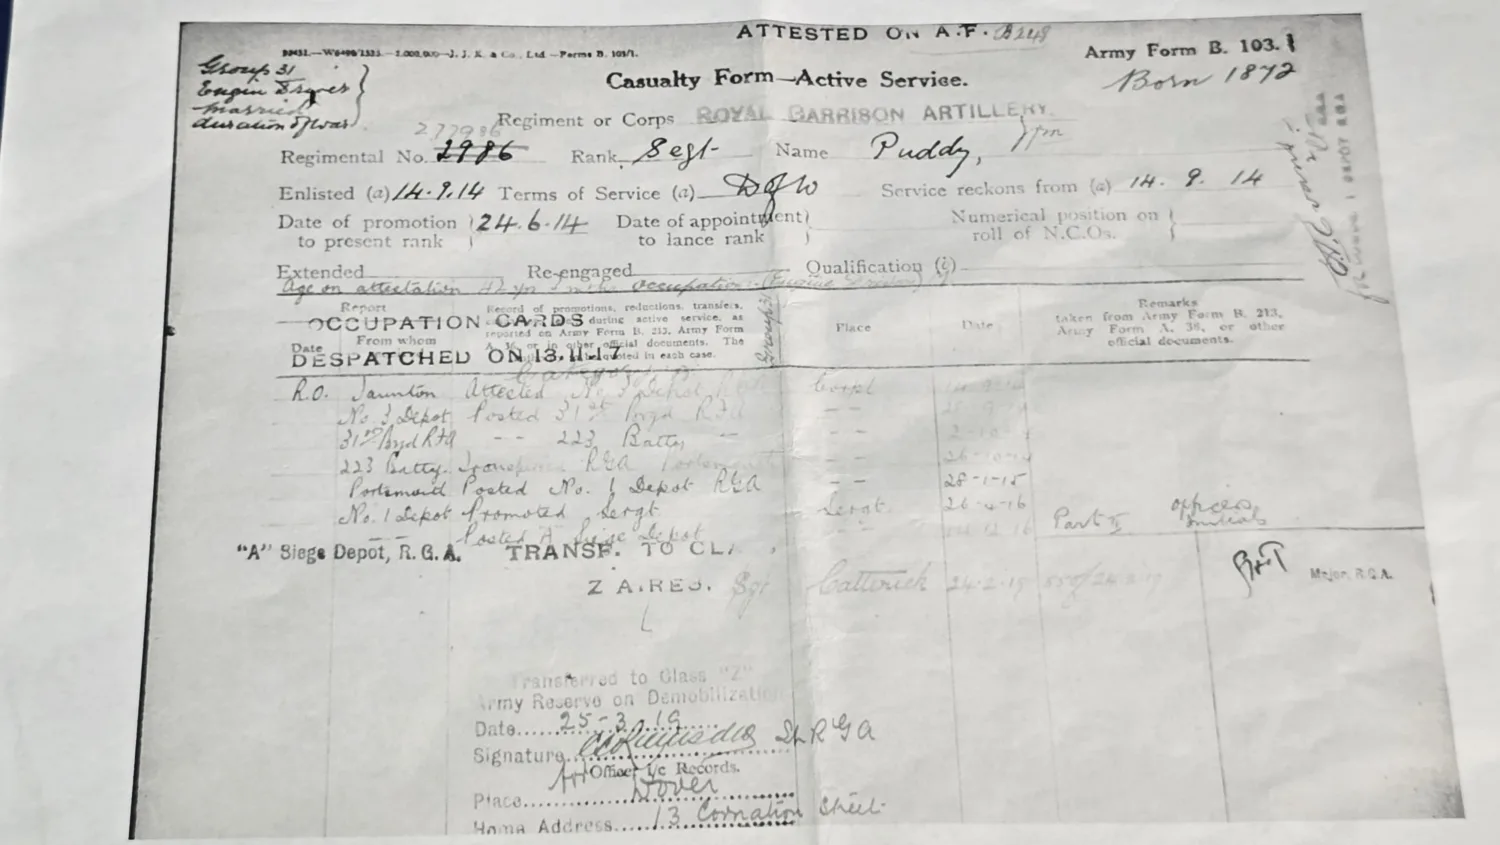 ATTESTED ON A.F. B248
Army Form B. 103.
W6499/1523.—1,000,000—J. J. K. & Co., Ltd.—Forms B. 103/1.
Group 31
Engin Dryver
Married
duration of war
Casualty Form—Active Service.
Born 1872
Regiment or Corps ROYAL GARRISON ARTILLERY.
277986
Regimental No. 2986 Rank Segt Name Puddy,
Enlisted (a) 14.9.14 Terms of Service (a) D of W Service reckons from (a) 14. 9. 14
Date of promotion to present rank 24.6.14 Date of appointment to lance rank Numerical position on roll of N.C.Os.
Extended Re-engaged Qualification (b)
Age on attestation 42 yrs occupation (Engine Driver)
Report
Date From whom
Record of promotions, reductions, transfers, during active service, as reported on Army Form B. 213, Army Form A. 36, or in other official documents. The quoted in each case.
Place
Date
Remarks
taken from Army Form B. 213, Army Form A. 36, or other official documents.
OCCUPATION CARDS
DESPATCHED ON 13.11.17
Group 31
Category B
R.O. Taunton Attested No 3 Depot Corpl
No. 3 Depot Posted 31st Brgd RFA - -
31st Bgd RFA - - 223 Batty -
223 Batty. RGA Portsmouth
Portsmouth Posted No. 1 Depot RGA 28-1-15
No. 1 Depot Promoted Sergt Sergt. 26-4-16
- - Posted A Siege Depot - - Part II officers initials
"A" Siege Depot, R.G.A. TRANSF. TO CL
Z A.RES. Sgt Catterick 24-2-19
Major, R.G.A.
Transferred to Class "Z"
Army Reserve on Demobilization
Date 25-3-19
Signature Lt RGA
for Officer i/c Records.
Place Dover
Home Address 13 Cornation Street